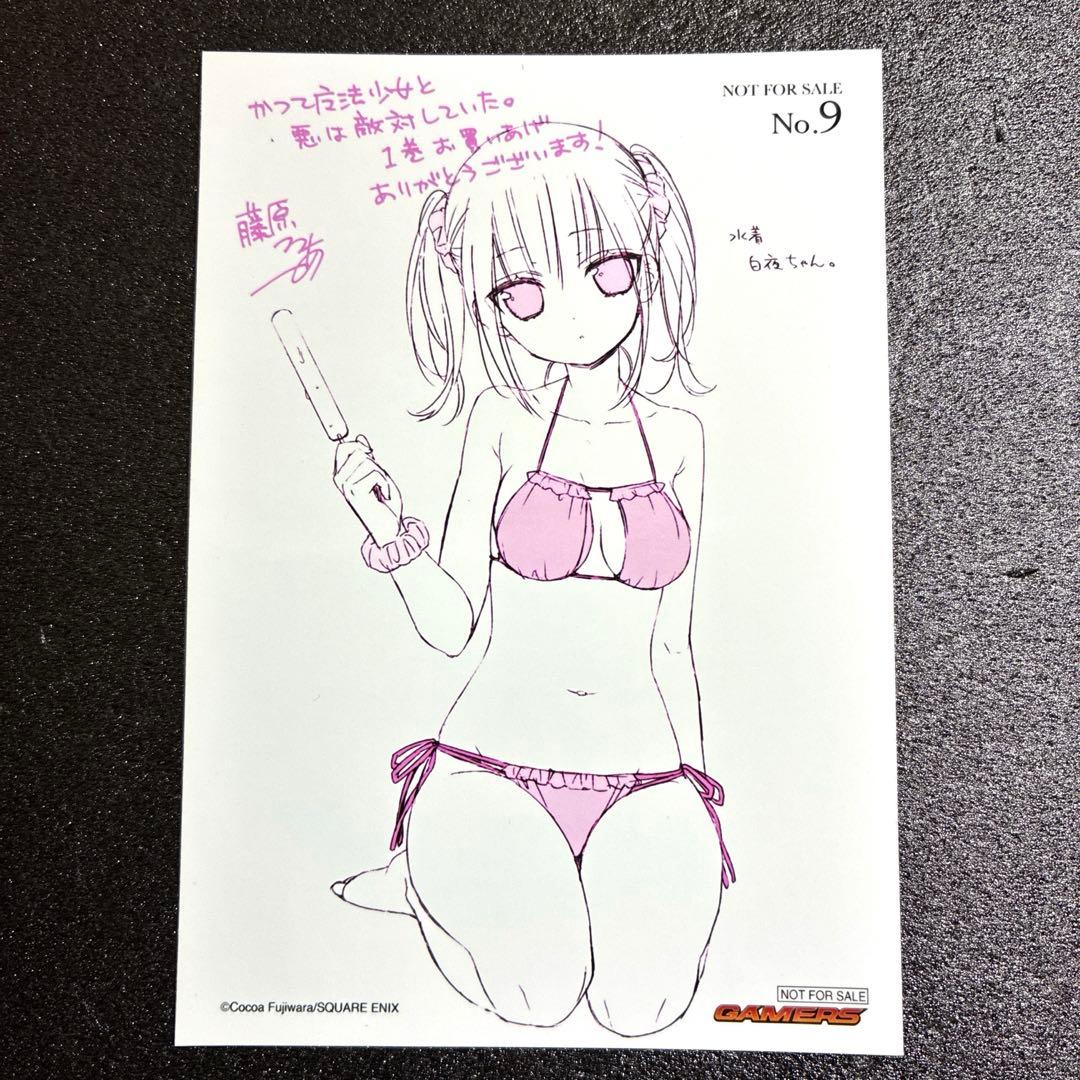 かつて魔法少女と
悪は敵対していた。
1巻お買いあげ
ありがとうございます!
藤原
ここあ
NOT FOR SALE
No.9
水着
白夜ちゃん。
©Cocoa Fujiwara/SQUARE ENIX
NOT FOR SALE
GAMERS